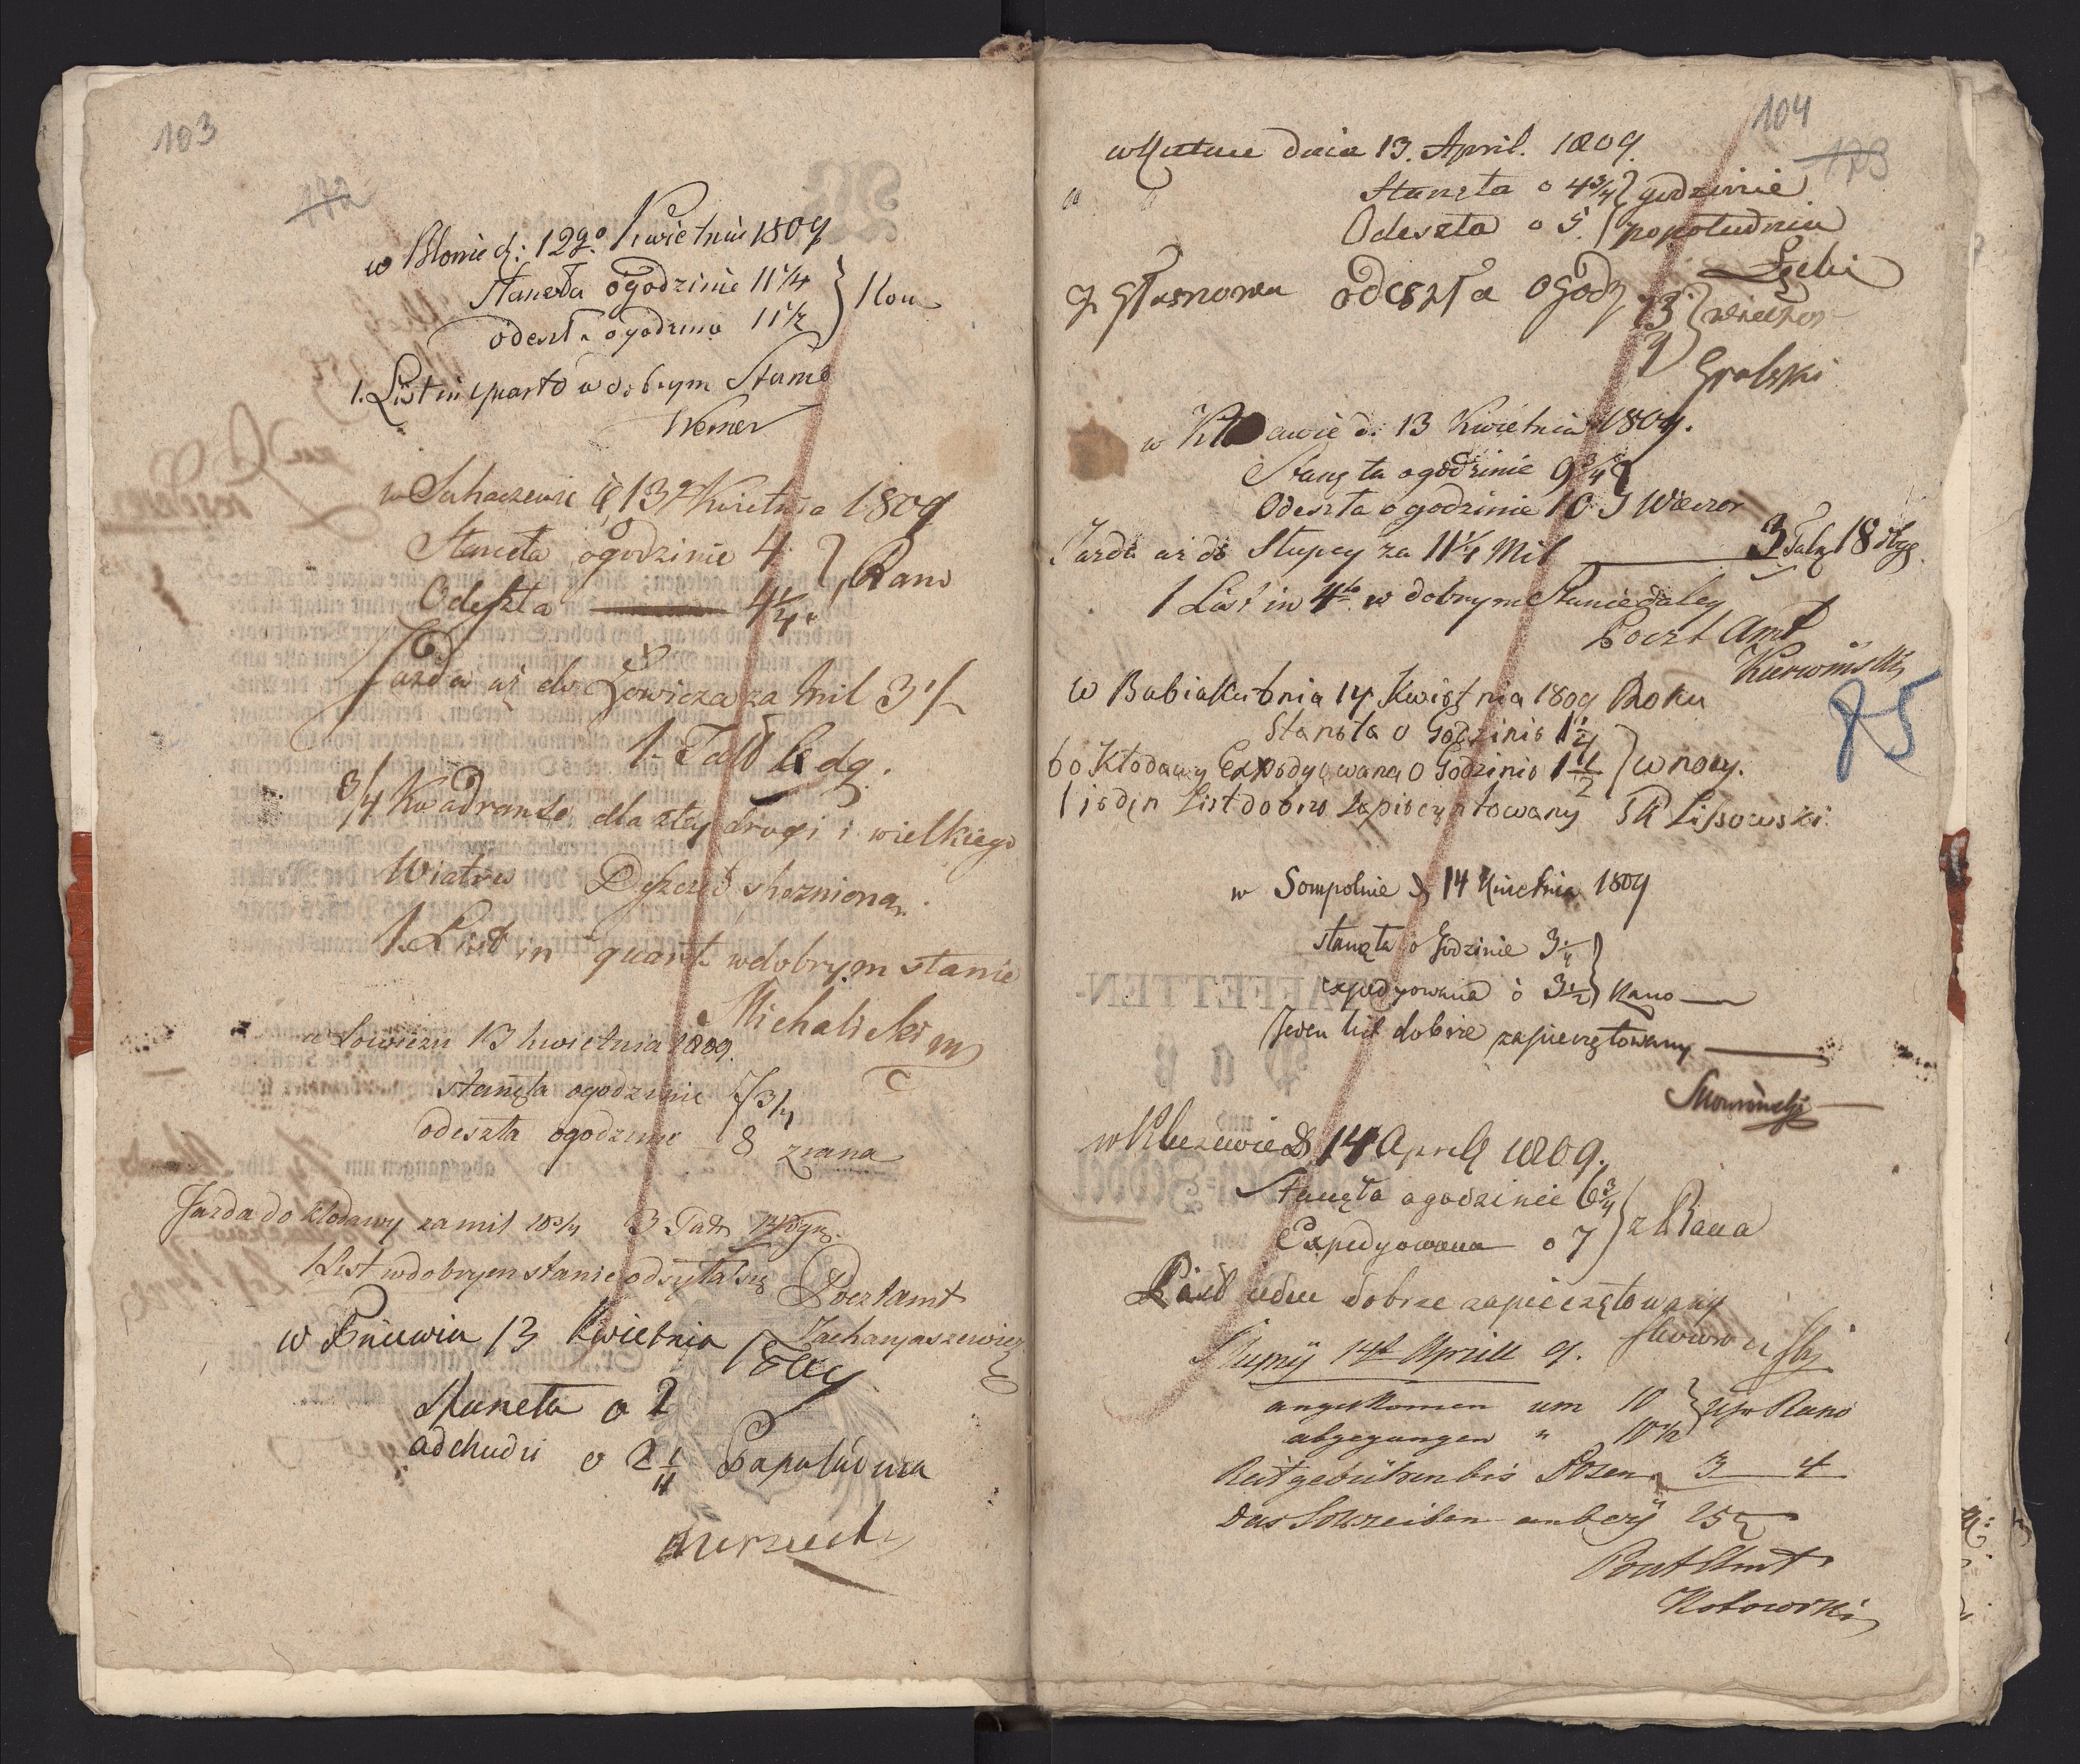 103
172
w Błonie d: 12go Kwietnia 1809
Staneła o godzinie 11 1/4
odeszła o godzinie 11 1/2
1. List in quarto w dobrym Stanie
Werner
w Sochaczewie d 13 Kwietnia 1809
Staneła o godzinie 4
Odeszła 4 1/4
Rano
Jazda aż do Łowicza za mil 3 1/2
1 Tall 6 dg.
3/4 Kwadranse dla złey drogi i wielkiego
Wiatru Deszczu
1. List in quart. w dobrym stanie
Michalicki
w Łowiczu 13 kwietnia 1809.
stanęła o godzinie 7 3/4
odeszła o godzinie 8 zrana
Jazda do Kłodawy za mil 10 3/4 3 Talr
1 List w dobrym stanie odsyła się
Pocztamt
Zacharjaszewicz
w Pniewiu 13 Kwietnia
Staneła o 2
odchodzi o 2 1/4 Popołudniu
104
173
w Kutnie dnia 13. April. 1809.
Staneła o 4 3/4 godzinie
Odeszła o 5. popołudniu
odeszła o godz
wieczor
Grabski
w Kłodawie d. 13 Kwietnia 1809.
Stanęła o godzinie 9 3/4
Odeszła o godzinie 10 Wieczor
Jazda aż do Słupcy za 11 1/4 Mil 3 Talr 18 dbg
1 List in 4to w dobrym Stanie daley
Poczt Amt
w Babiaku dnia 14 Kwietnia 1809 Roku
Staneła o Godzinie 1 1/4
do Kłodawy Expedyowana o Godzinie 1 1/2 w nocy.
1 ieden List dobrze zapieczętowany Lissowski
85
w Sompolnie d 14 Kwietnia 1809
stanęła o Godzinie 3 1/4
expedyowana o 3 1/2 Rano
Jeden list dobrze zapieczętowany
w Kleczewie d 14 Aprila 1809.
Stanęła o godzinie 6 3/4
Expedyowana o 7
z Rana
List ieden dobrze zapieczętowany
Skowroński
Slupcy 14t Aprill 9.
angekomen um 10
abgegangen " 10 1/2
Uhr Rano
Reitgebühren bis Posen 3 4
Das Schreiben anbey
Post Amt
Kotowski